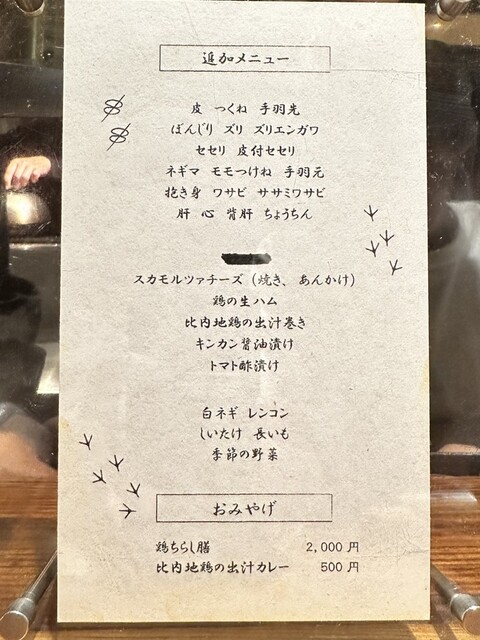 追加メニュー
皮 つくね 手羽先
ぼんじり ズリ ズリエンガワ
セセリ 皮付セセリ
ネギマ モモつけね 手羽元
抱き身 ワサビ ササミワサビ
肝 心 背肝 ちょうちん
スカモルツァチーズ (焼き、あんかけ)
鶏の生ハム
比内地鶏の出汁巻き
キンカン醤油漬け
トマト酢漬け
白ネギ レンコン
しいたけ 長いも
季節の野菜
おみやげ
鶏ちらし膳 2,000円
比内地鶏の出汁カレー 500円